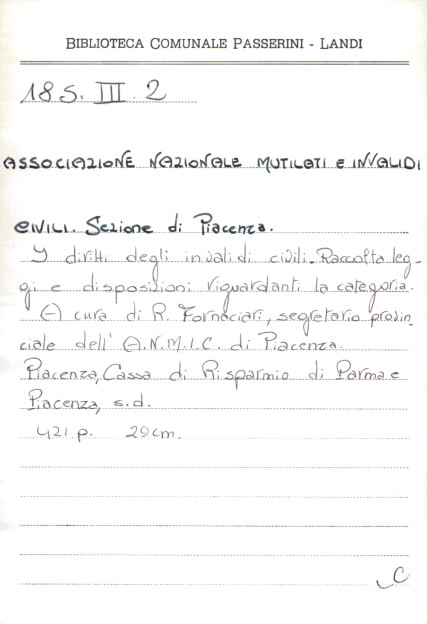 BIBLIOTECA COMUNALE PASSERINI - LANDI
18S. III. 2
ASSOCIAZIONE NAZIONALE MUTILATI e INVALIDI
CIVILI. Sezione di Piacenza.
I diritti degli invalidi civili. Raccolta leg-
gi e disposizioni riguardanti la categoria.
A cura di R. Fornaciari, segretario provin_
ciale dell' A.N.M.I.C. di Piacenza.
Piacenza, Cassa di Risparmio di Parma e
Piacenza, s.d.
421 p. 29cm.
C